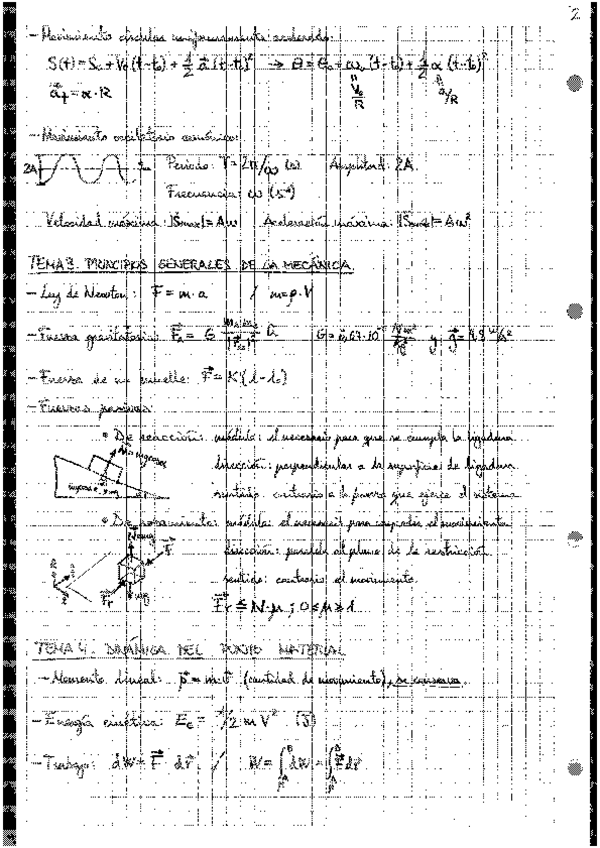 2
- Movimiento circular uniformemente acelerado:
S(t) = S₀ + V₀(t-t₀) + 1/2 a⃗ (t-t₀)² → θ = θ₀ + ω₀ (t-t₀) + 1/2 α (t-t₀)²
a⃗t = α·R
V₀/R
a/R
- Movimiento oscilatorio armónico:
2A
Periodo: T = 2π/ω (s) Amplitud: 2A
Frecuencia: ω (s⁻¹)
Velocidad máxima: |Ṡmax| = Aω Aceleración máxima: |S̈max| = Aω²
TEMA 3. PRINCIPIOS GENERALES DE LA MECÁNICA
- Ley de Newton: F = m·a / m = ρ·V
- Fuerza gravitatoria:
- Fuerza de un muelle: F⃗ = K(l-l₀)
- Fuerzas pasivas:
• De reacción: módulo: el necesario para que se cumpla la ligadura
dirección: perpendicular a la superficie de ligadura
sentido: contrario a la fuerza que ejerce el sistema
• De rozamiento: módulo: el necesario para impedir el movimiento
dirección: paralela al plano de la restricción
sentido: contrario al movimiento
F⃗r ≤ N·μ ; 0 ≤ μ ≥ 1
TEMA 4. DINÁMICA DEL PUNTO MATERIAL
- Momento lineal: p⃗ = m·v⃗ (cantidad de movimiento), se conserva.
- Energía cinética: Ec = 1/2 m V² (J)
- Trabajo: dW = F⃗ dr⃗ / W = ∫ᴬᴮ dW = ∫ᴬᴮ F⃗ dr⃗